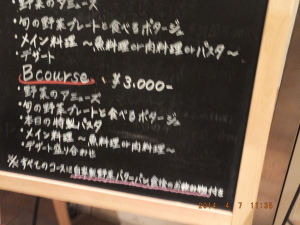 ・野菜のアミューズ
・旬の野菜プレートと食べるポタージュ
・メイン料理 〜魚料理or肉料理orパスタ〜
・デザート
Bcourse ¥3.000-
・野菜のアミューズ
・旬の野菜プレートと食べるポタージュ
・本日の特製パスタ
・メイン料理 〜魚料理or肉料理〜
・デザート盛り合わせ
※すべてのコースに自家製野菜バターパン食後のお飲み物付き
2014 4 7 11:35